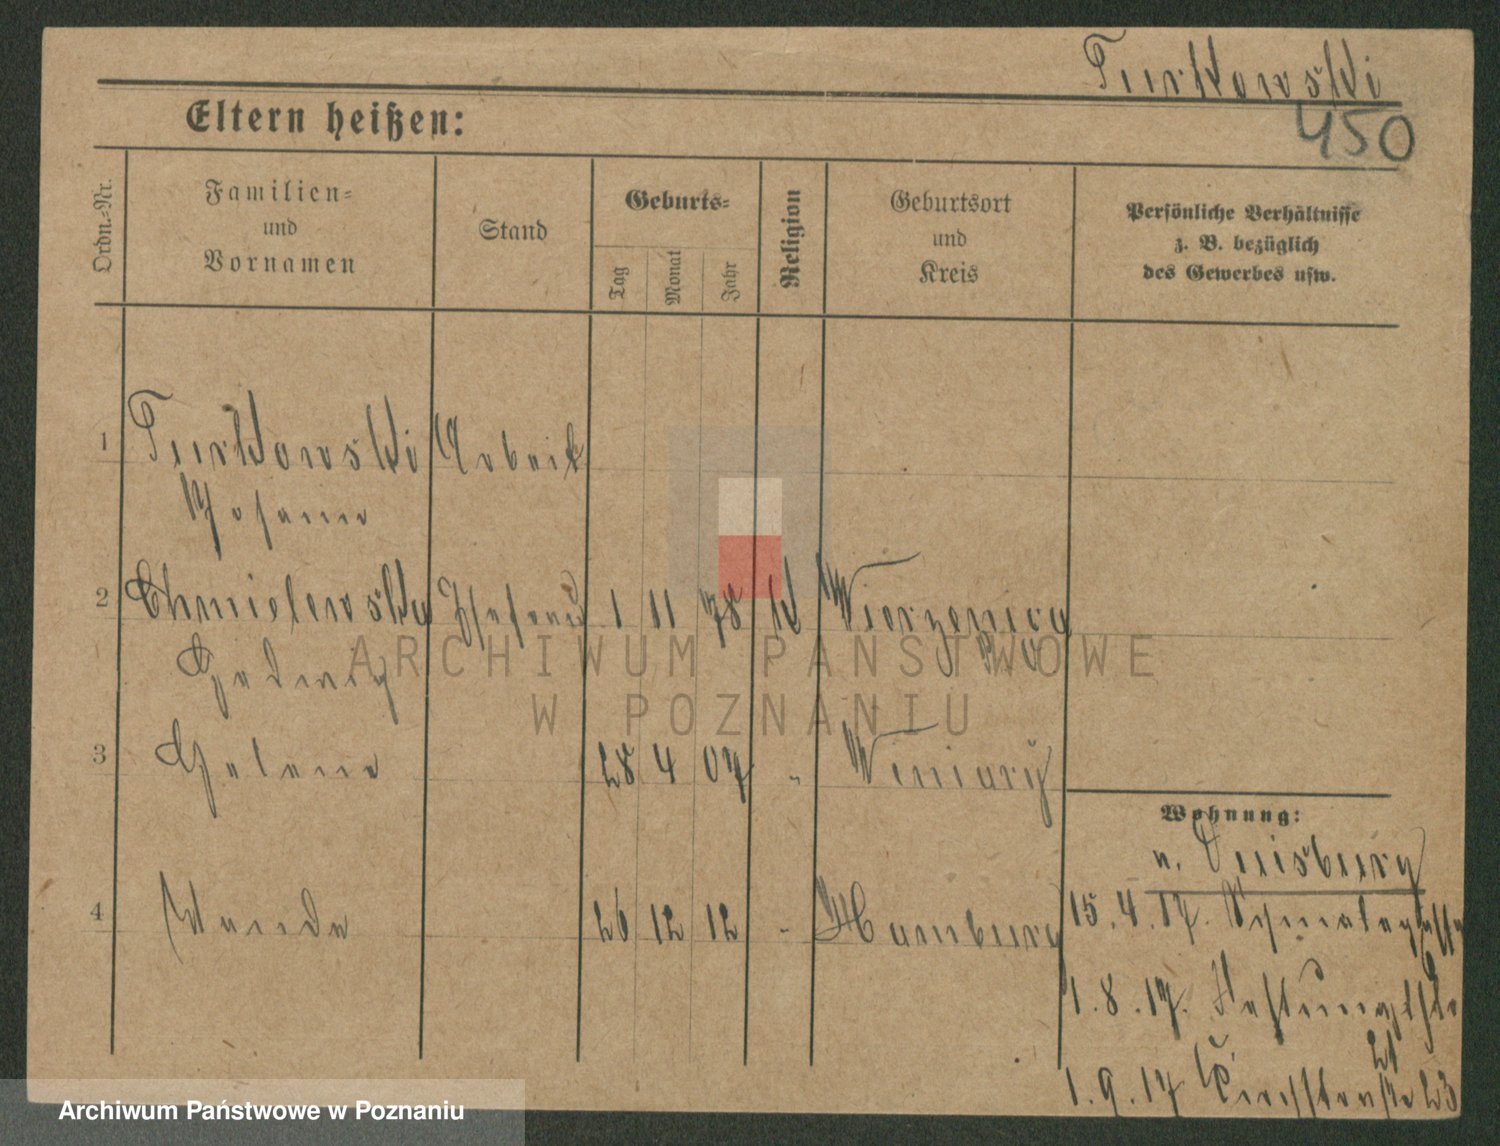 Turkowski
450
Eltern heißen:
Ordn.-Nr.
Familien-
und
Vornamen
Stand
Geburts-
Tag
Monat
Jahr
Religion
Geburtsort
und
Kreis
Persönliche Verhältnisse
z. B. bezüglich
des Gewerbes usw.
1 Turkowski Arbeit
Johann
2 Chmielewska Ehefrau 1 11 78 k Wierzenica
Hedwig
3 Helene 28 4 07 " Winiary
4 Wanda 26 12 12 " Hamburg
Wohnung:
n. Duisburg
15.4.17.
1.8.17.
21
1.9.17 23
ARCHIWUM PAŃSTWOWE
W POZNANIU
Archiwum Państwowe w Poznaniu